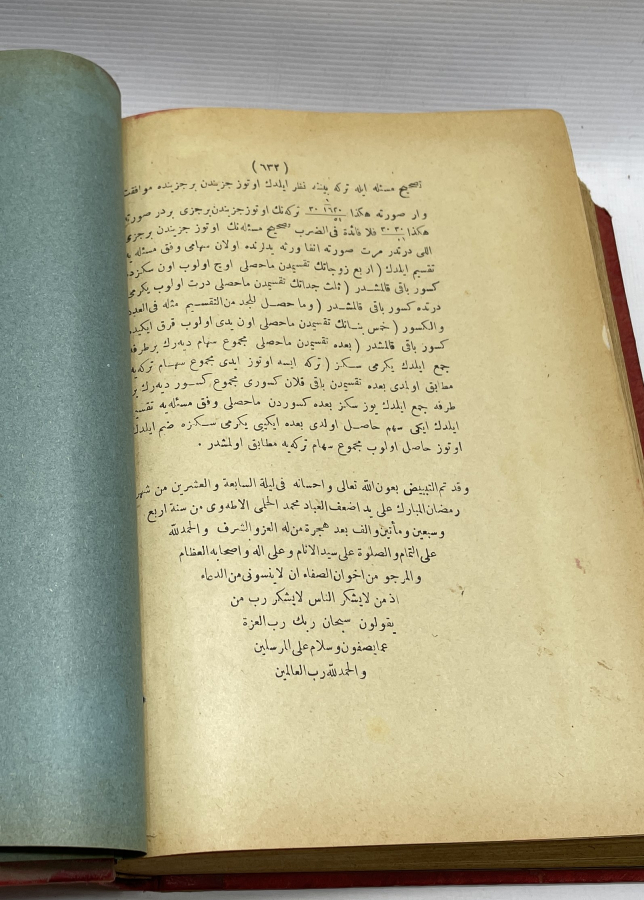 (٦٣٢)
تصحيح مسئله ايله تركه بيننه نظر ايلدك اوتوز جزيندن برجزينده موافقت
وار صورته هكذا ٣٠ ١٦٣٠ تركه‌نك اوتوز جزيندن برجزى بردر صورته
هكذا ٣٠ ٣٠ فلا فائدة فى الضرب تصحيح مسئله‌نك اوتوز جزيندن برجزى
اللى درتدر مرت صورته انفا ورثه يدلرنده اولان سهامى وفق مسئله يه
تقسيم ايلدك (اربع زوجاتك تقسيمدن ماحصلى اوچ اولوب اون سكزده
كسور باقى قالمشدر (ثلث جداتك تقسيمدن ماحصلى درت اولوب يكرمى
درتده كسور باقى قالمشدر (وما حصل للجد من التقسيم مثله فى العدد
والكسور (خمس بناتك تقسيمدن ماحصلى اون يدى اولوب قرق ايكيده
كسور باقى قالمشدر (بعده تقسيمدن ماحصلى مجموع سهام ديه‌رك برطرفه
جمع ايلدك يكرمى سكز (تركه ايسه اوتوز ايدى مجموع سهام تركه‌يه
مطابق اولمدى بعده تقسيمدن باقى قلان كسورى مجموع كسور ديه‌رك بر
طرفه جمع ايلدك يوز سكز بعده كسوردن ماحصلى وفق مسئله‌يه تقسيم
ايلدك ايكى سهم حاصل اولدى بعده ايكيى يكرمى سكزه ضم ايلدك
اوتوز حاصل اولوب مجموع سهام تركه‌يه مطابق اولمشدر .
وقد تم التبييض بعون الله تعالى واحسانه فى ليلة السابعة والعشرين من شهر
رمضان المبارك على يد اضعف العباد محمد الحلمى الاطه‌وى من سنة اربع
وسبعين ومأتين والف بعد هجرة من له العز والشرف والحمد لله
على التمام والصلوة على سيد الانام وعلى اله واصحابه العظام
والمرجو من اخوان الصفاء ان لا ينسونى من الدعاء
اذ من لا يشكر الناس لا يشكر رب من
يقولون سبحان ربك رب العزة
عما يصفون وسلام على المرسلين
والحمد لله رب العالمين